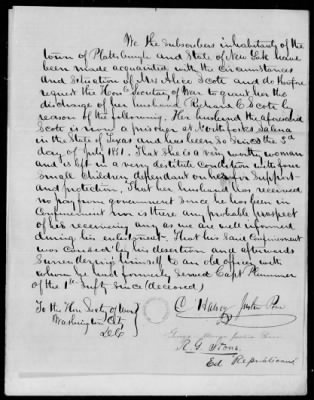 We the Subscribers inhabitants of the
town of Plattsburgh and State of New York have
been made acquainted with the circumstances
and situation of Mrs Alice Scott and do therefore
request the Honb Secretary of War to grant her the
discharge of her husband Richard C Scott by
reason of the following. Her husband the aforesaid
Scott is now a prisoner at North forks Salina
in the State of Texas and has been so Since the 3d
day of July 1851. That She is a very worthy woman
and is left in a very destitute Condition with four
Small Children dependant on her for Support
and protection, That her husband has received
no pay from government Since he has been in
Confinement nor is there any probable prospect
of his receiving any as we are well informed
during his enlistment. That his Said Confinement
was Caused by his desertion and afterwards
Surrendering himself to an old officer with
whom he had formerly Served Capt Plummer
of the 1st Infty Since (deceased)
To the Hon Secty of War
Washington City
D.C.
Justice Peace
R G Stone
Ed Republican